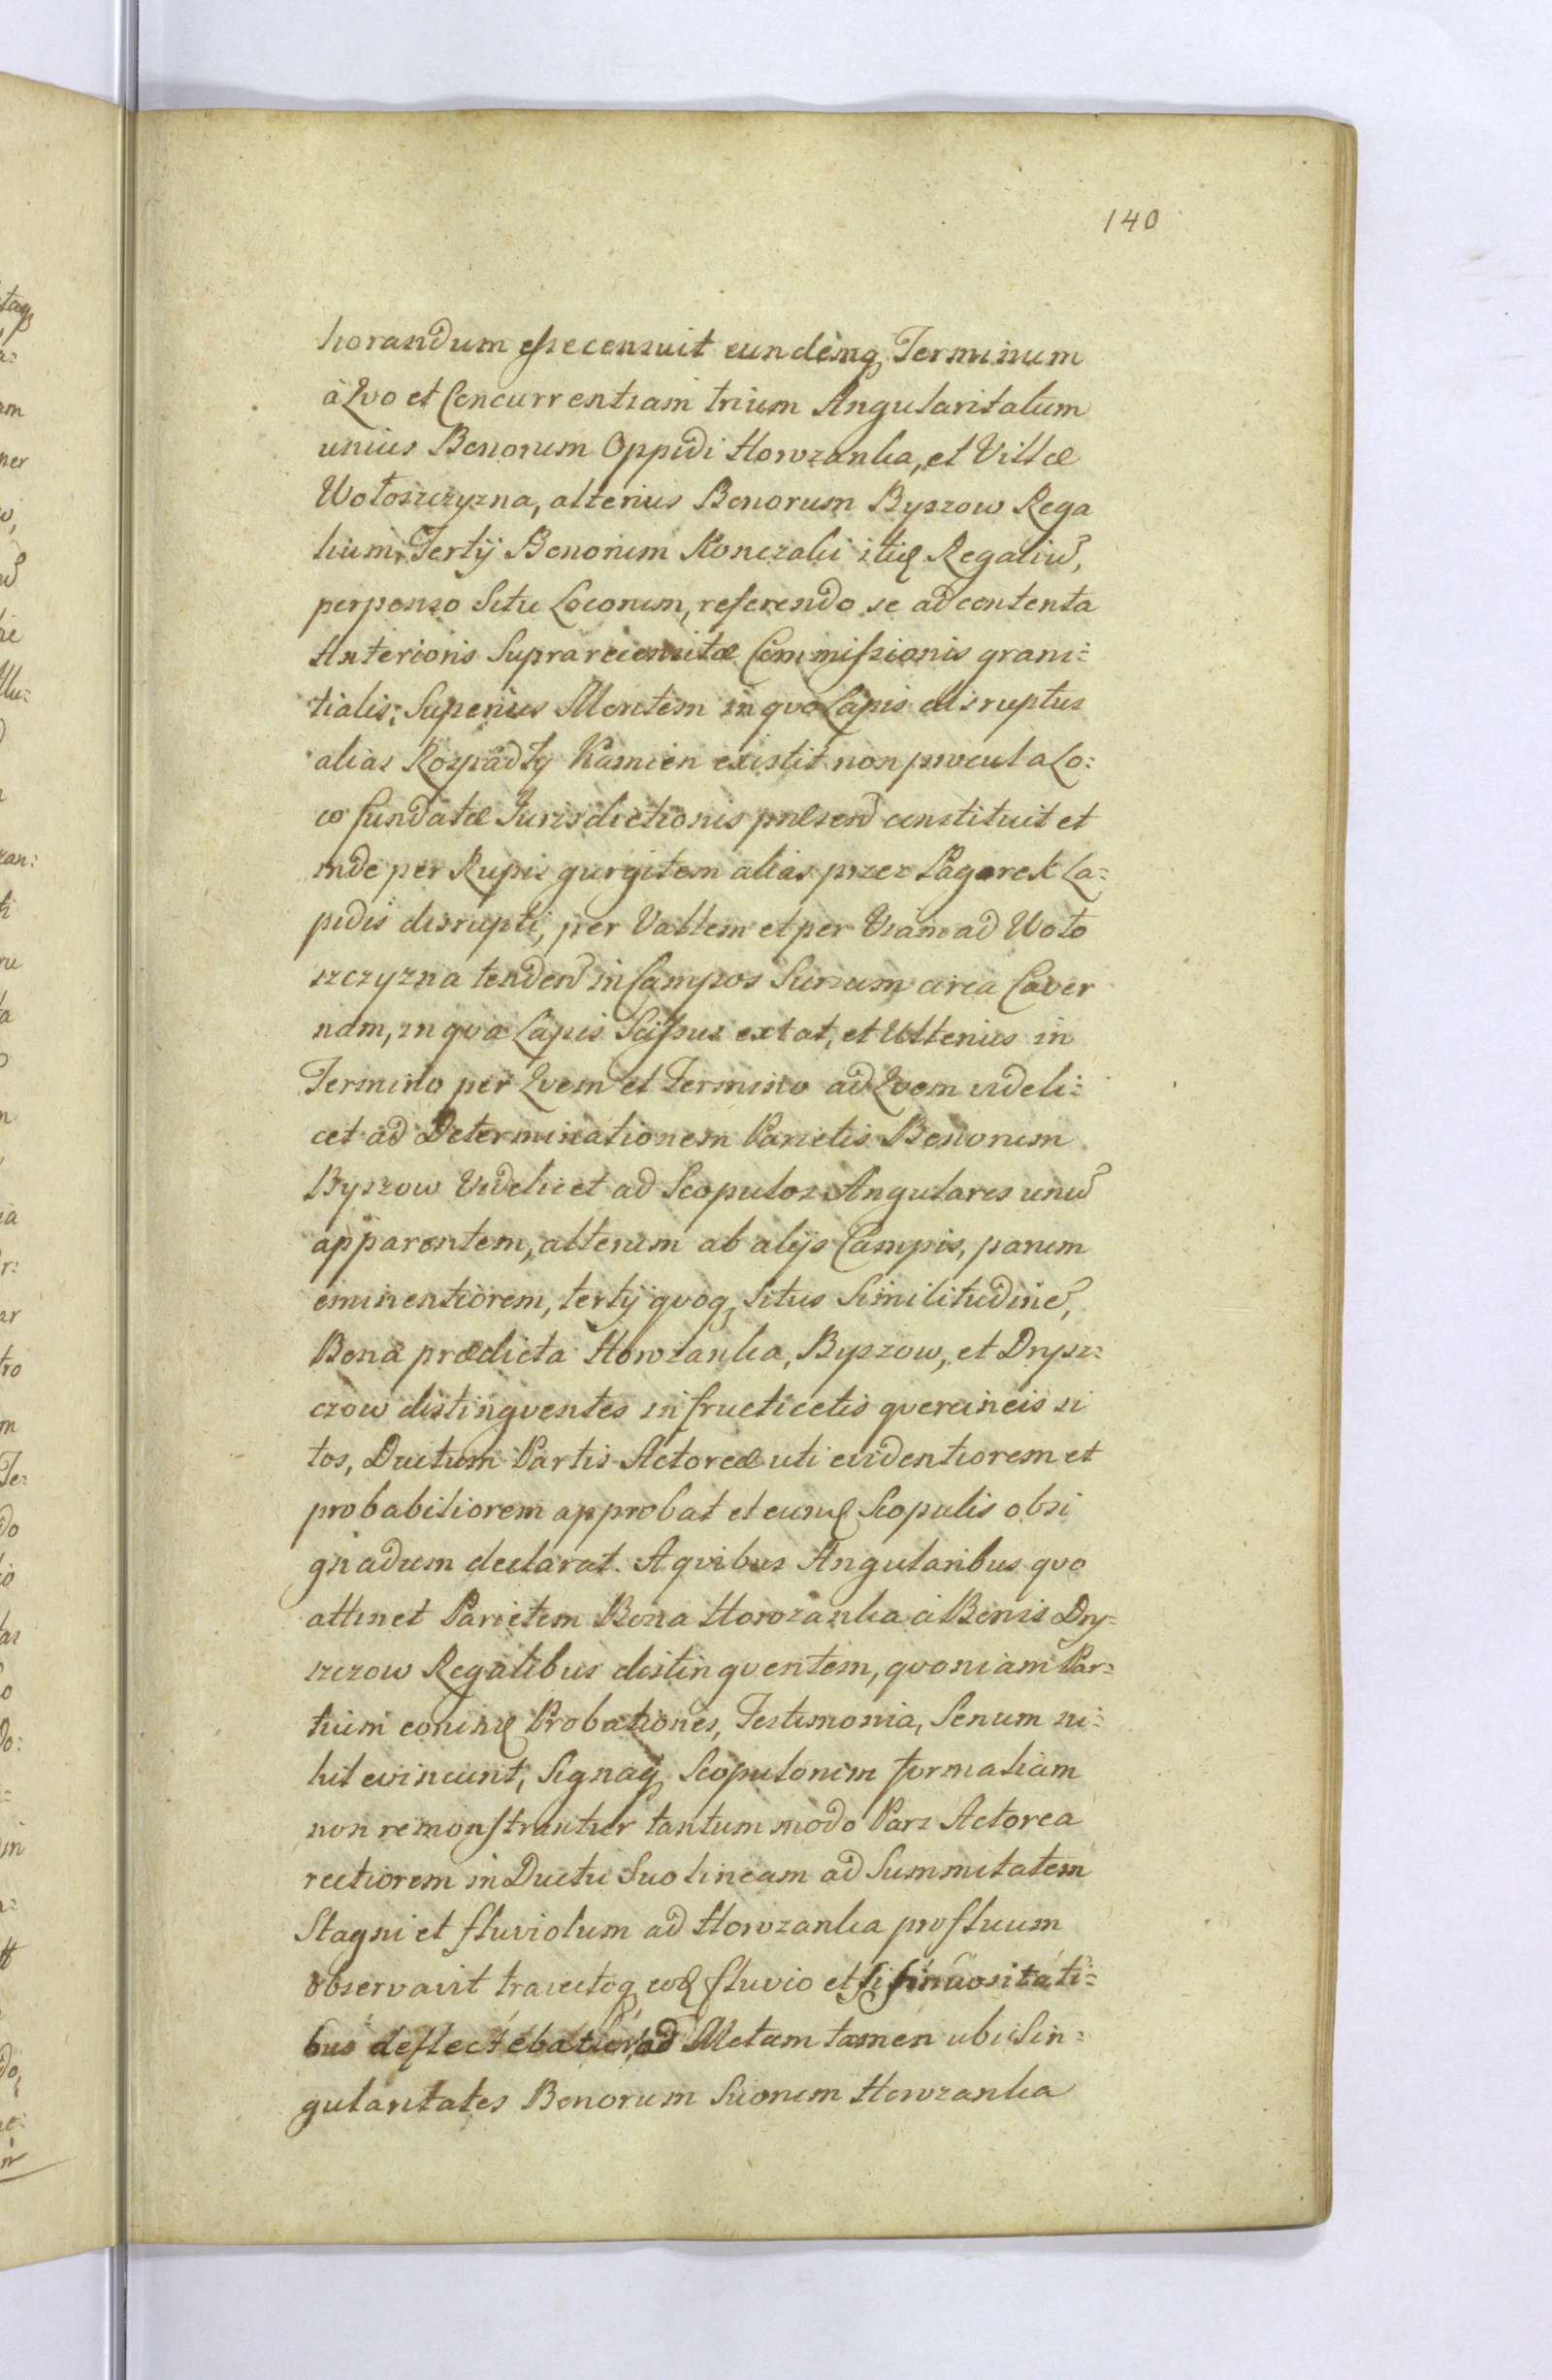 140
horandum esse censuit eundemq Terminum
à Qvo et Concurrentiam trium Angularitatum
unius Bonorum Oppidi Horozanka, et Villæ
Wołoszczyzna, alterius Bonorum Byszow Rega
lium, Tertij Bonorum Konczaki itid Regaliu,
perpenso Situ Locorum, referendo se ad contenta
Anterioris Suprarecensitæ Commissionis grani=
tialis; Superius Montem in qvo Lapis disruptus
alias Rozpadły Kamien existit non procul a Lo=
co fundatæ Jurisdictionis præsend constituit et
inde per Rupis gurgitem alias przez Pagorek La=
pidis disrupti, per Vallem et per Viam ad Woło
szczyzna tendend in Campos Sursum circa Caver
nam, in qva Lapis Scissus extat, et Ulterius in
Termino per Qvem et Termino ad Qvem videli=
cet ad Determinationem Parietis Bonorum
Byszow Videlicet ad Scopulos Angulares unu
apparentem, alterum ab alijs Campis, parum
eminentiorem, tertij qvoq Situs Similitudine,
Bona prædicta Horozanka, Byszow, et Drysz=
czow distingventes in fructicetis qvercineis si
tos, Ductum Partis Actoreæ uti evidentiorem et
probabiliorem approbat et eund Scopulis obsi
gnadum declarat. A qvibus Angularibus qvo
attinet Parietem Bona Horozanka à Bonis Dry=
szczow Regalibus distingventem, qvoniam Par=
tium earund Probationes, Testimonia, Senum ni=
hil evincunt, Signaq Scopulorum formaliam
non remonstrantur tantum modo Pars Actorea
rectiorem in Ductu Suo lineam ad Summitatem
Stagni et fluviolum ad Horozanka profluum
observavit traiectoq eod fluvio etsi sinuositati=
bus deflectebatur, ad Metam tamen ubi Sin=
gularitates Bonorum Suorum Horozanka